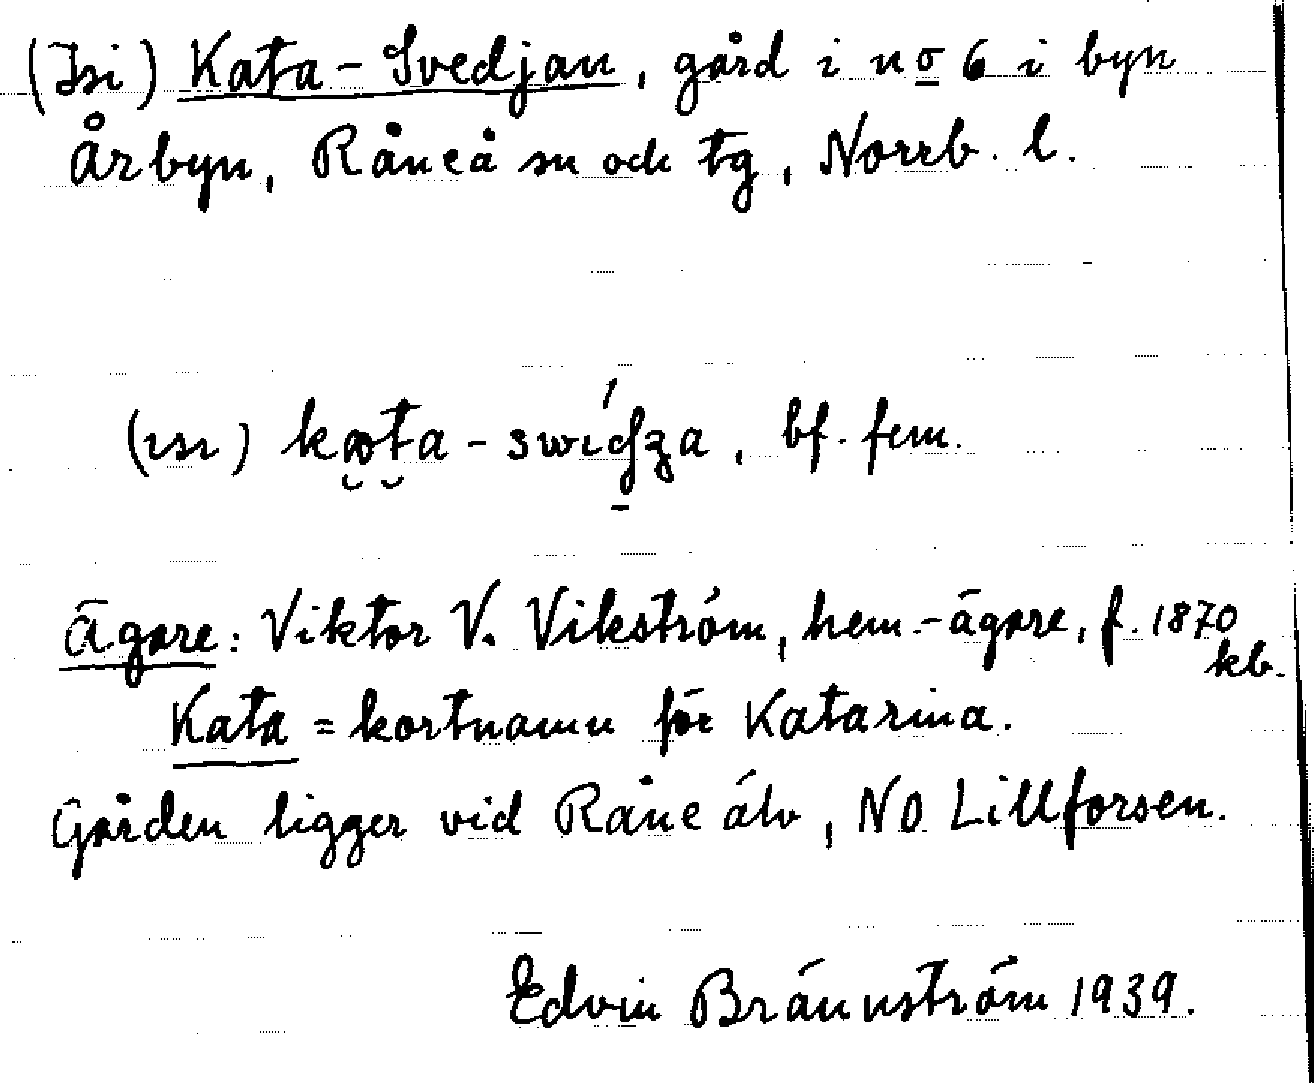 (Isi) Kata-Svedjan, gård i no 6 i byn
Årbyn, Råneå sn och tg, Norrb. l.
(ısı) kata-swıʤa, bf. fem.
Ägare: Viktor V. Vikström, hem.-ägare, f. 1870
kb.
Kata = kortnamn för Katarina.
Gården ligger vid Råne älv, NO Lillforsen.
Edvin Brännström 1939.